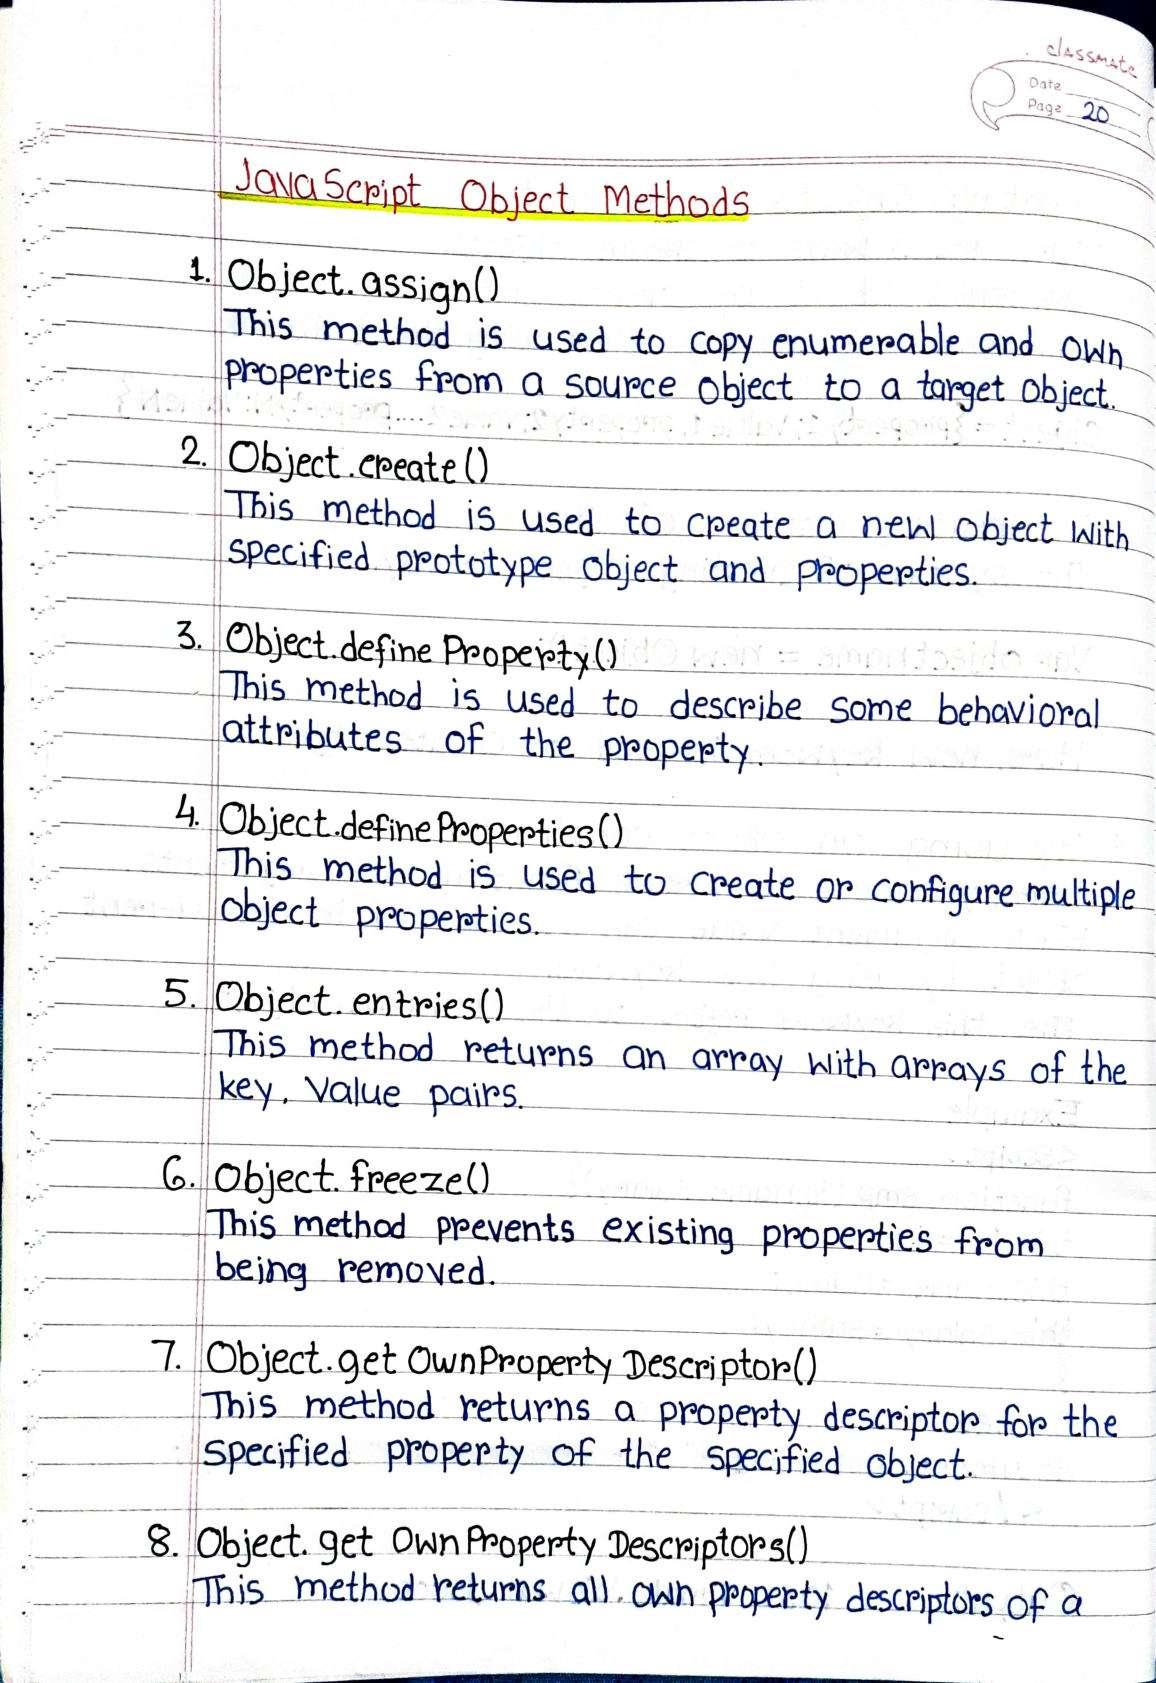 classmate
Date
Page 20
JavaScript Object Methods
1. Object.assign()
This method is used to copy enumerable and own
properties from a source object to a target object.
2. Object.create()
This method is used to create a new object with
specified prototype object and properties.
3. Object.defineProperty()
This method is used to describe some behavioral
attributes of the property.
4. Object.defineProperties()
This method is used to create or configure multiple
object properties.
5. Object.entries()
This method returns an array with arrays of the
key, value pairs.
6. Object.freeze()
This method prevents existing properties from
being removed.
7. Object.getOwnPropertyDescriptor()
This method returns a property descriptor for the
specified property of the specified object.
8. Object.getOwnPropertyDescriptors()
This method returns all own property descriptors of a